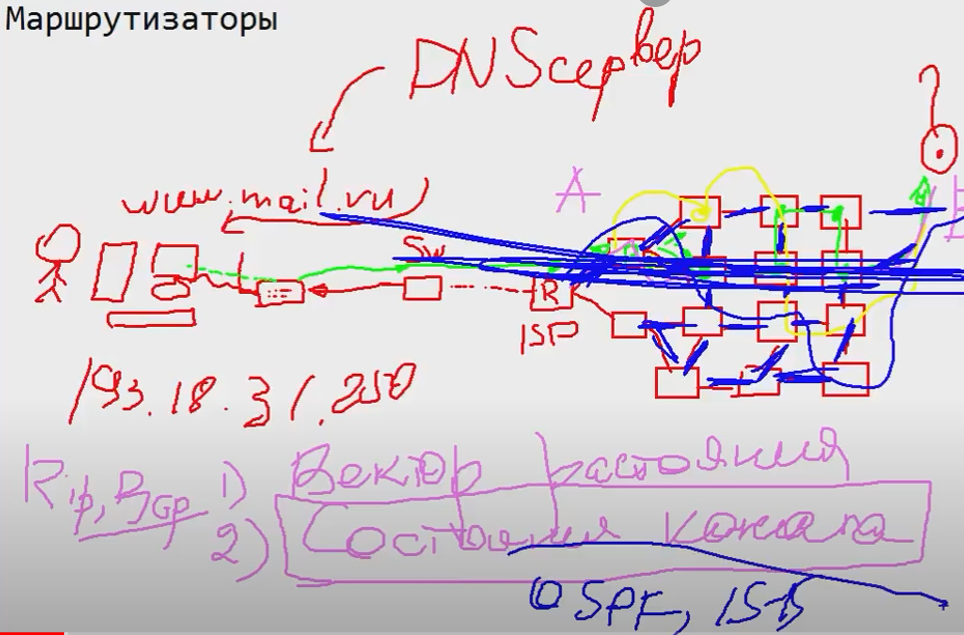 Маршрутизаторы
DNS сервер
?
www.mail.ru
A
Sw
R
ISP
193.18.31.250
1) Вектор растояния
2) Состояния канала
OSPF, IS-IS